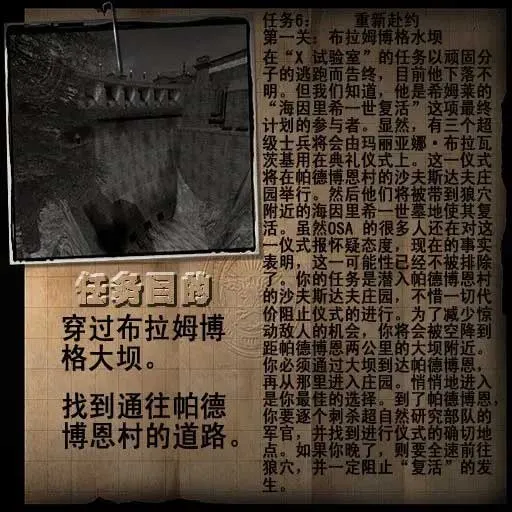 任务6： 重新赴约
第一关：布拉姆博格水坝
在“X 试验室”的任务以顽固分
子的逃跑而告终，目前他下落不
明。但我们知道，他是希姆莱的
“海因里希一世复活”这项最终
计划的参与者。显然，有三个超
级士兵将会由玛丽亚娜·布拉瓦
茨基用在典礼仪式上。这一仪式
将在帕德博恩村的沙夫斯达夫庄
园举行。然后他们将被带到狼穴
附近的海因里希一世墓地使其复
活。虽然OSA 的很多人还在对这
一仪式报怀疑态度，现在的事实
表明，这一可能性已经不被排除
了。你的任务是潜入帕德博恩村
的沙夫斯达夫庄园，不惜一切代
价阻止仪式的进行。为了减少惊
动敌人的机会，你将会被空降到
距帕德博恩两公里的大坝附近。
你必须通过大坝到达帕德博恩，
再从那里进入庄园。悄悄地进入
是你最佳的选择。到了帕德博恩，
你要逐个刺杀超自然研究部队的
军官，并找到进行仪式的确切地
点。如果你晚了，则要全速前往
狼穴，并一定阻止“复活”的发
生。
任务目的
穿过布拉姆博
格大坝。
找到通往帕德
博恩村的道路。